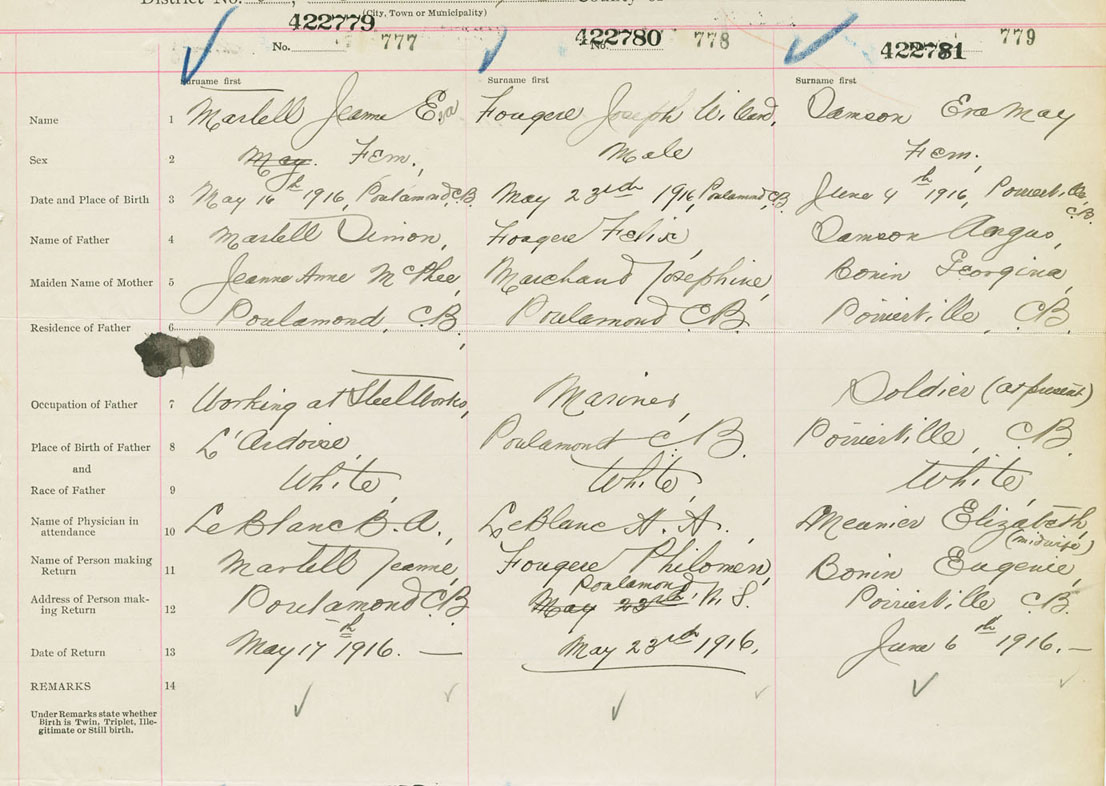 District No. County of
(City, Town or Municipality)
422779 422780 422781
No. 777 No. 778 779
Surname first Surname first Surname first
Name 1 Martell Jeanne Eva Fougere Joseph Wilard, Samson Eva May
Sex 2 May. Fem, Male Fem,
Date and Place of Birth 3 May 16th 1916, Poulamond, C.B. May 23rd 1916, Poulamond, C.B. June 4th 1916, Poirierville, C.B.
Name of Father 4 Martell Simon, Fougere Felix, Samson Angus,
Maiden Name of Mother 5 Jeanne Anne McPhee, Marchand Josephine, Bonin Georgina,
Residence of Father 6 Poulamond, C.B. Poulamond C.B. Poirierville, C.B.
Occupation of Father 7 Working at Steel Works, Mariner, Soldier (at present)
Place of Birth of Father 8 L'Ardoise, Poulamond C.B. Poirierville, C.B.
and
Race of Father 9 White, White, White,
Name of Physician in
attendance 10 LeBlanc B. A., LeBlanc A. A. Meunier Elizabeth,
(midwife)
Name of Person making
Return 11 Martell Jeanne, Fougere Philomen, Bonin Eugenie,
Address of Person mak-
ing Return 12 Poulamond C.B. May 23rd Poulamond, N.S. Poirierville C.B.
Date of Return 13 May 17th 1916. — May 23rd 1916, June 6th 1916. —
REMARKS 14
Under Remarks state whether
Birth is Twin, Triplet, Ille-
gitimate or Still birth.